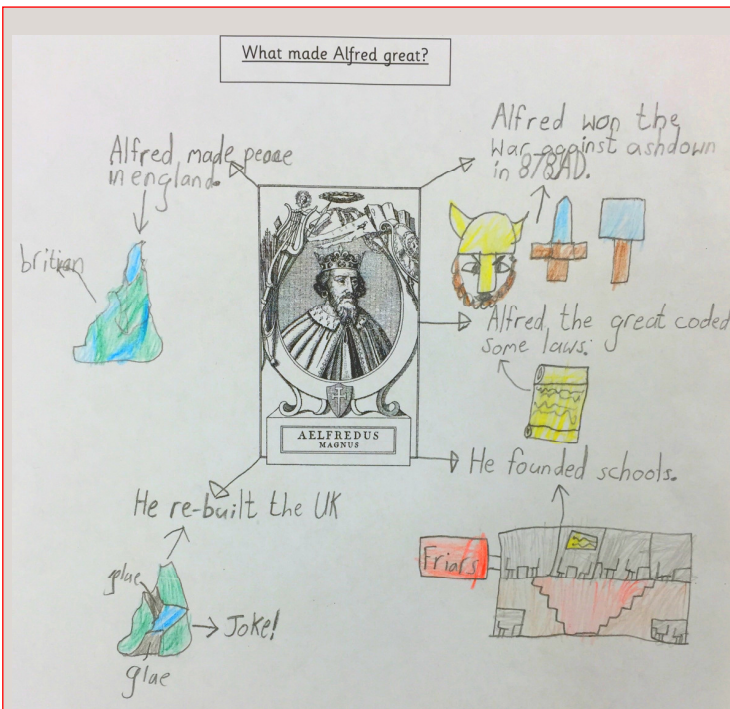 What made Alfred great?
Alfred made peace
in england.
britian
Alfred won the
war against ashdown
in 878AD.
Alfred the great coded
some laws.
AELFREDUS
MAGNUS
He founded schools.
Friars
He re-built the UK
glue
Joke!
glae